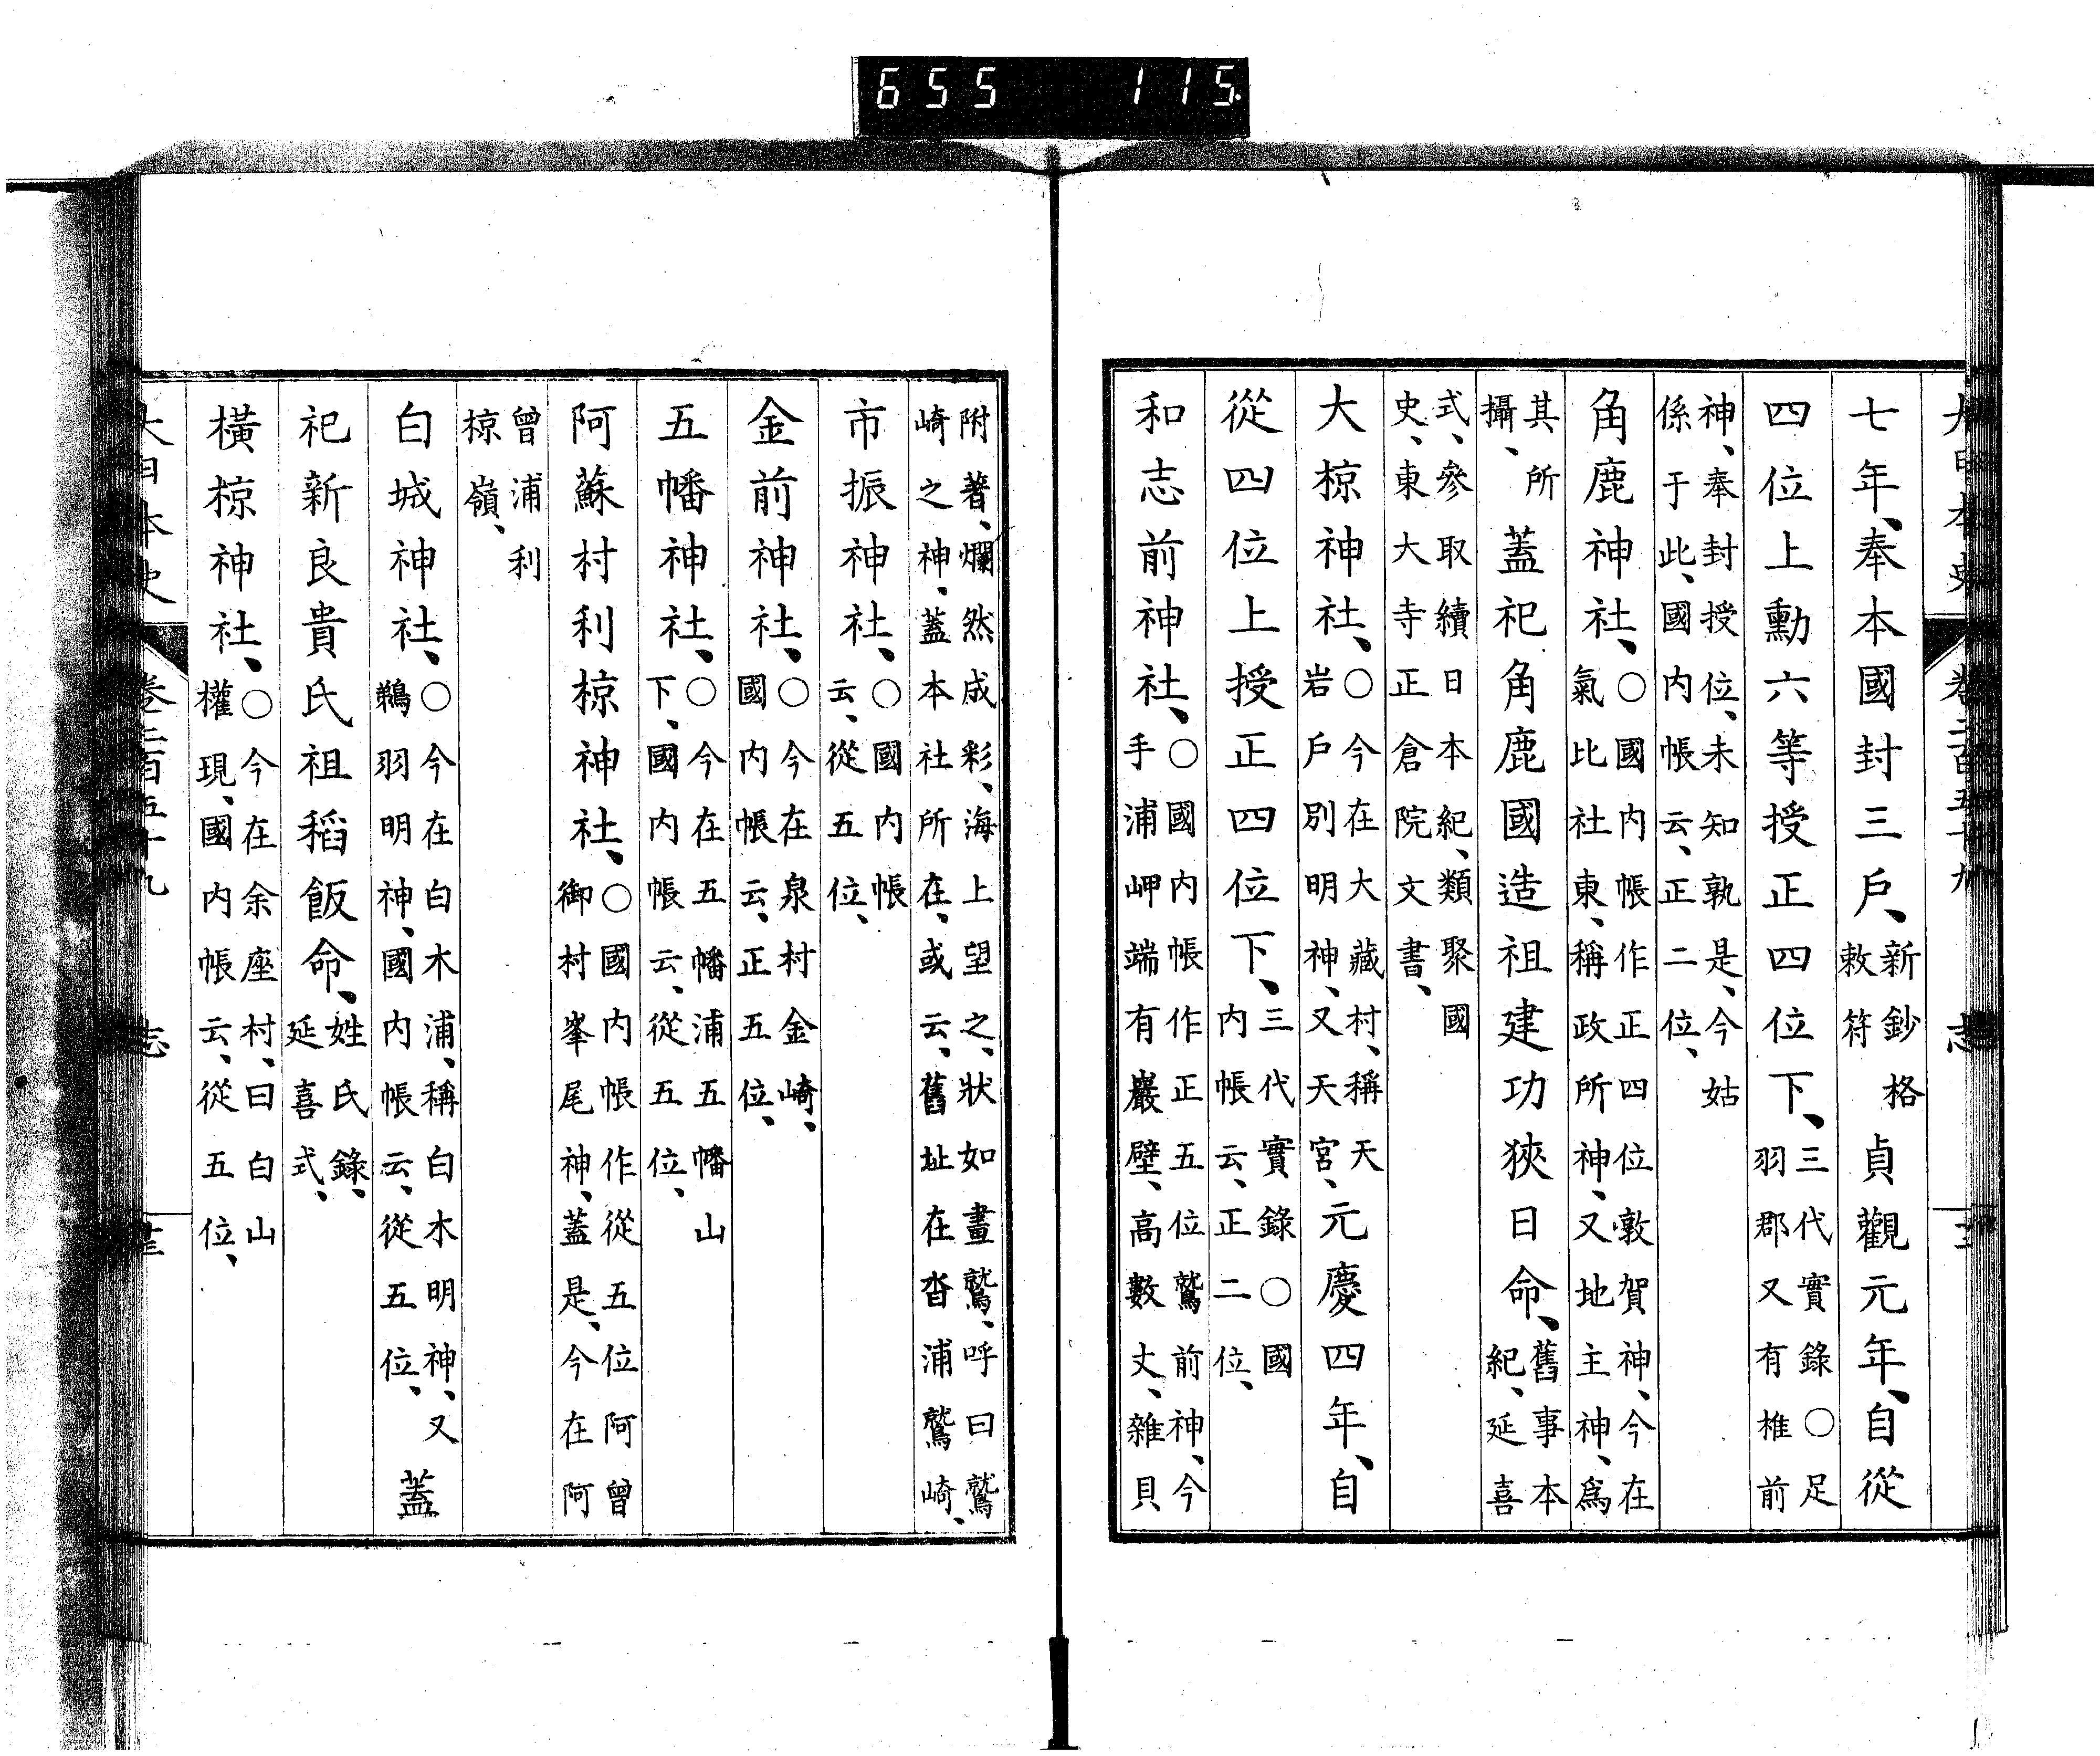 大日本史　卷二百五十九　志
七年、奉本國封三戶、新鈔格敕符貞觀元年、自從
四位上勳六等授正四位下、三代實錄○足羽郡又有椎前
神、奉封授位、未知孰是、今姑係于此、國内帳云、正二位、
角鹿神社、○國内帳作正四位敦賀神、今在氣比社東、稱政所神、又地主神、爲
其所攝、蓋祀角鹿國造祖建功狹日命、舊事本紀、延喜
式、參取續日本紀、類聚國史、東大寺正倉院文書、
大椋神社、○今在大藏村、稱天岩戶別明神、又天宮、元慶四年、自
從四位上授正四位下、三代實錄○國内帳云、正二位、
和志前神社、○國内帳作正五位鷲前神、今手浦岬端有巖壁、高數丈、雜貝
附著、爛然成彩、海上望之、狀如畫鷲、呼曰鷲崎之神、蓋本社所在、或云、舊址在沓浦鷲崎、
市振神社、○國内帳云、從五位、
金前神社、○今在泉村金崎、國内帳云、正五位、
五幡神社、○今在五幡浦五幡山下、國内帳云、從五位、
阿蘇村利椋神社、○國内帳作從五位阿曾御村峯尾神、蓋是、今在阿
曾浦利椋嶺、
白城神社、○今在白木浦、稱白木明神、又鵜羽明神、國内帳云、從五位、蓋
祀新良貴氏祖稻飯命、姓氏錄、延喜式、
橫椋神社、○今在余座村、曰白山權現、國内帳云、從五位、
大日本史　卷二百五十九　志
655 115